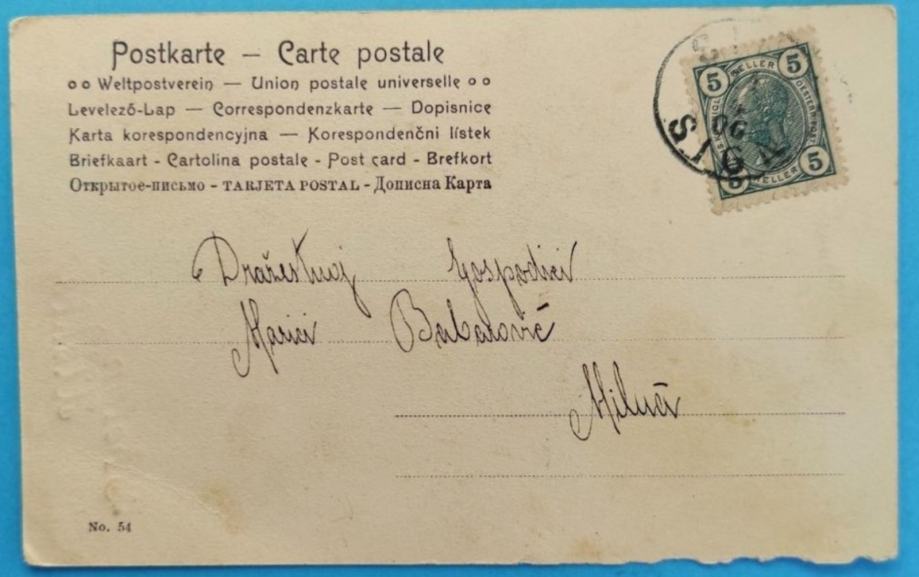 Postkarte — Carte postale
Weltpostverein — Union postale universelle
Levelező-Lap — Correspondenzkarte — Dopisnice
Karta korespondencyjna — Korespondenčni lístek
Briefkaart - Cartolina postale - Post card - Brefkort
Открытое-письмо - TARJETA POSTAL - Дописна Карта
5 HELLER 5
5 HELLER 5
SIGN
06
Dražestnoj Gospodici
Marici Babarović
Milna
No. 54